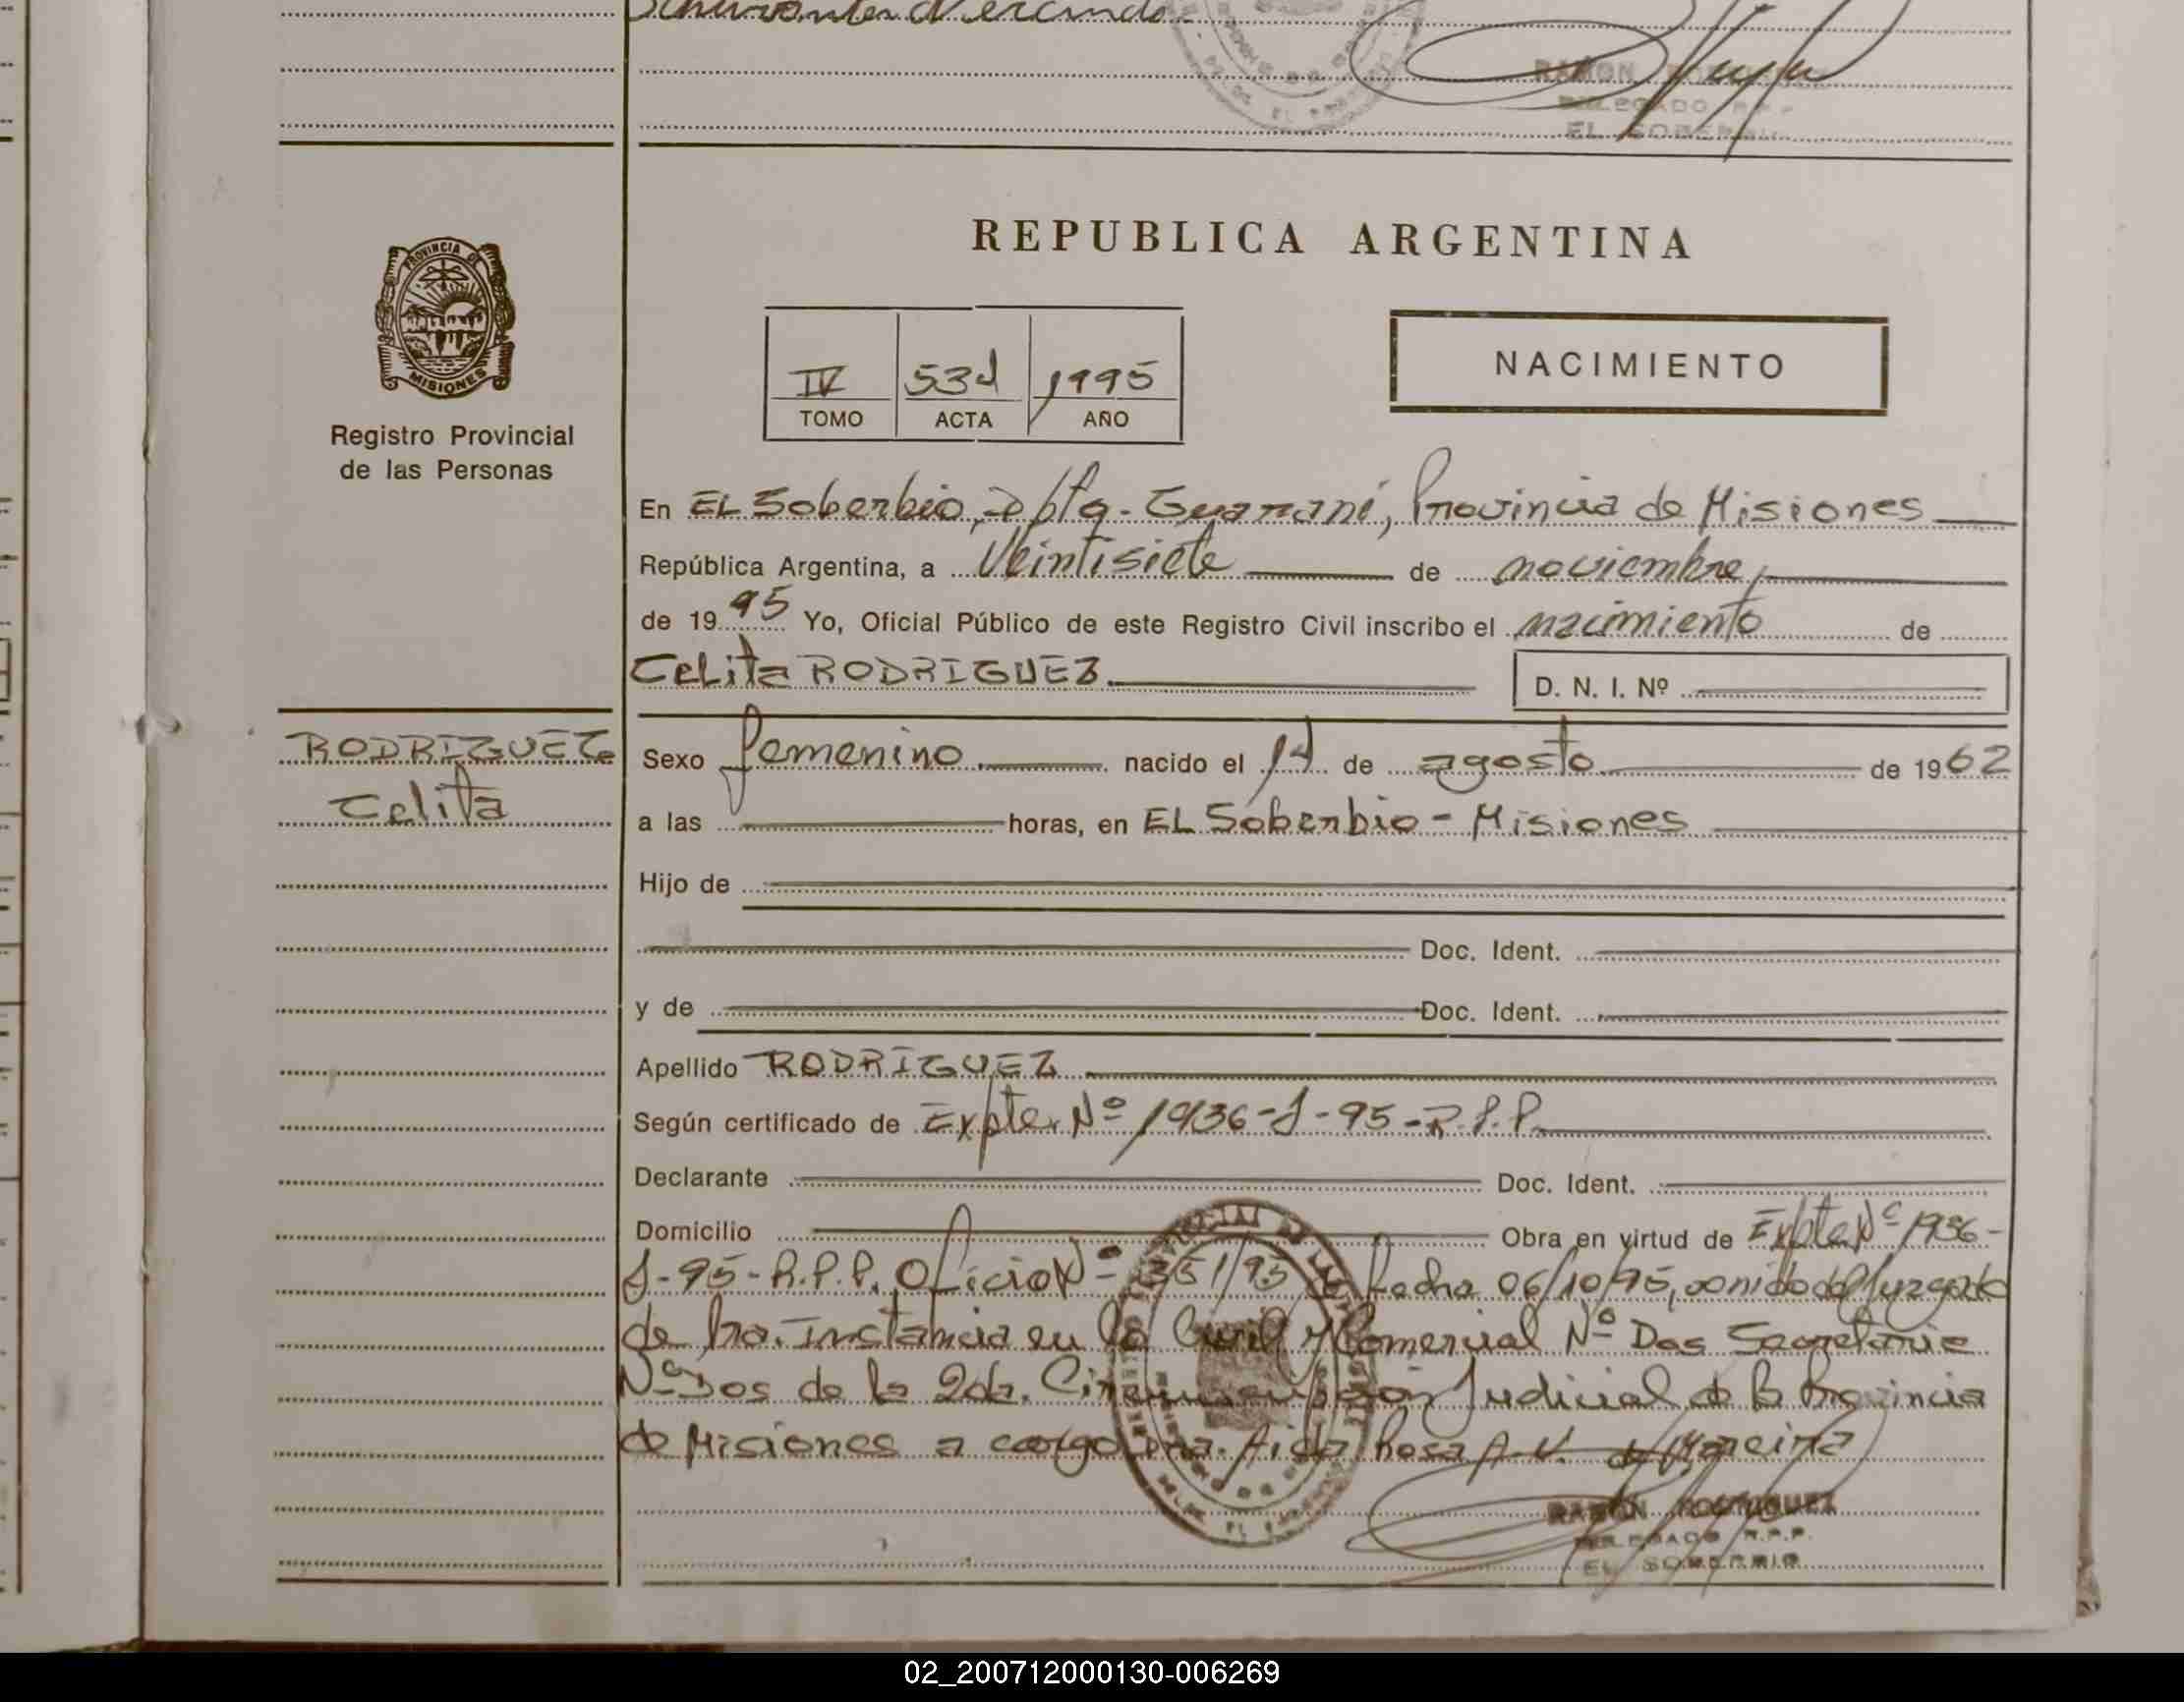 REPUBLICA ARGENTINA
PROVINCIA DE
MISIONES
Registro Provincial
de las Personas
IV 534 1995
TOMO ACTA AÑO
NACIMIENTO
En EL Soberbio, Dpto. Guaraní, Provincia de Misiones
República Argentina, a Veintisiete de noviembre,
de 1995 Yo, Oficial Público de este Registro Civil inscribo el nacimiento de
Celita RODRIGUEZ.
D. N. I. Nº
RODRIGUEZ
Celita
Sexo femenino nacido el 14 de agosto de 1962
a las horas, en EL Soberbio - Misiones
Hijo de
Doc. Ident.
y de Doc. Ident.
Apellido RODRIGUEZ
Según certificado de Expte. Nº 1936-J-95-R.P.P.
Declarante Doc. Ident.
Domicilio Obra en virtud de Expte Nº 1936-
J-95-R.P.P. Oficio Nº 351/95 de fecha 06/10/95, del Juzgado
de 1ra. Instancia en lo Civil y Comercial Nº Dos Secretaria
Nº Dos de la 2da. Circunscripción Judicial de la Provincia
de Misiones a cargo Dra. Aida Rosa A. V. de
RAMON RODRIGUEZ
DELEGADO R.P.P.
EL SOBERBIO
02_200712000130-006269